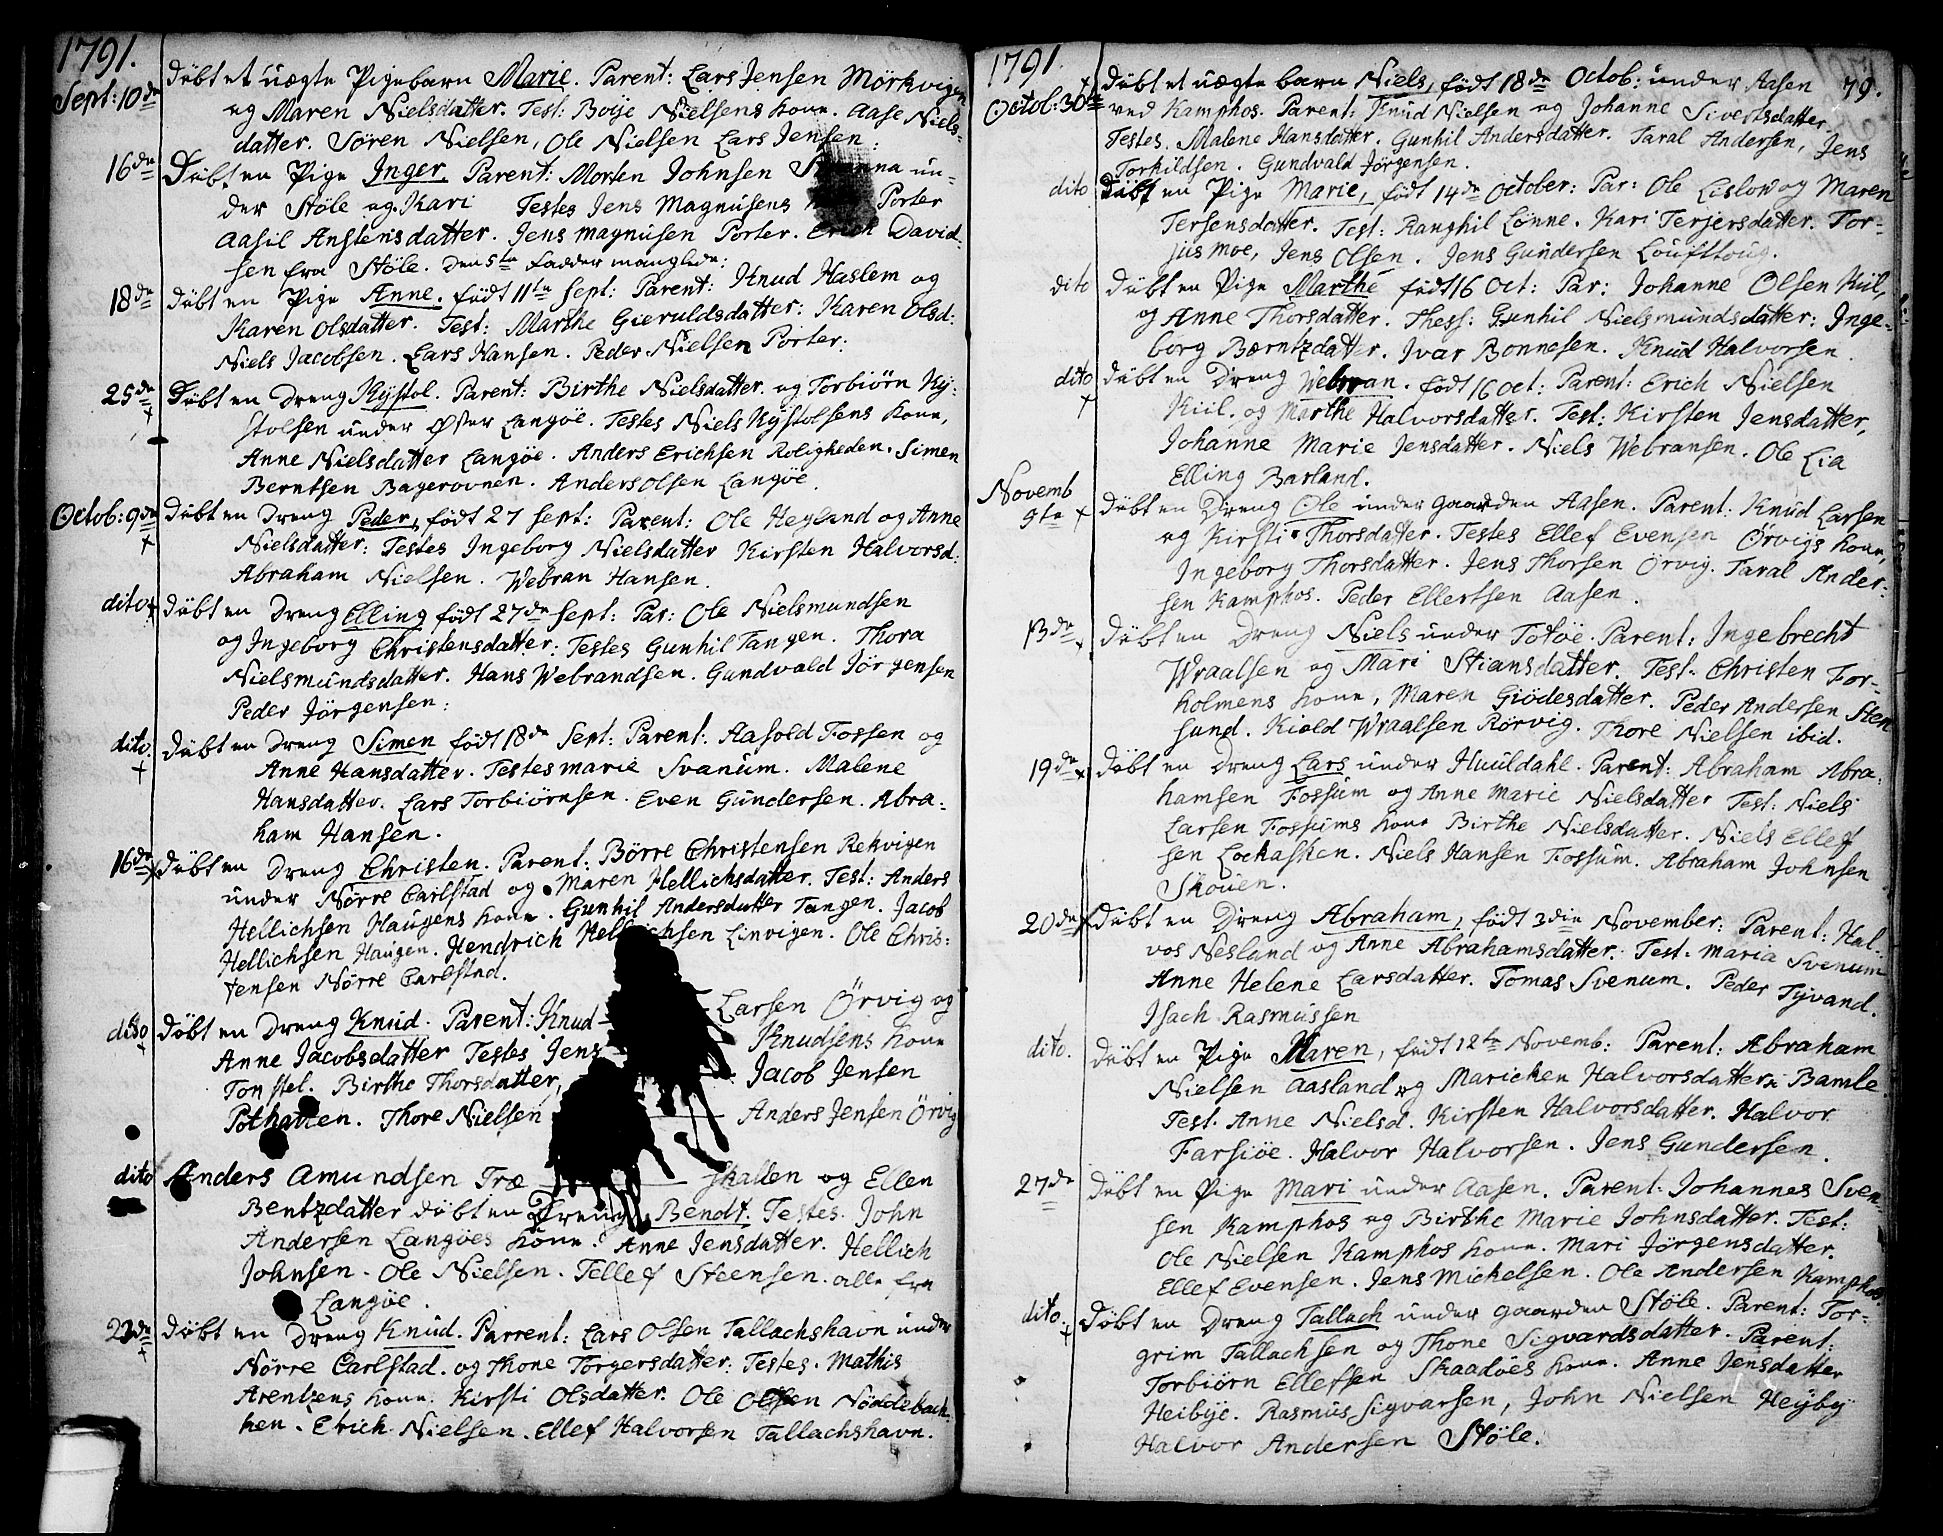 1791.
Sept: 10de Döbt et uægte Pigebarn Marie. Parent: Lars Jensen Mörkvigen
og Maren Nielsdatter. Test: Boÿe Nielsens kone. Aase Niels-
datter. Sören Nielsen, Ole Nielsen Lars Jensen:
16de Döbt en Pige Inger. Parent: Morten Johnsen un-
der Stöle og Kari Testes Jens Magnusens Porter
Aasil Anstensdatter. Jens Magnusen Porter. Erich David-
sen fra Stöle. Den 5te Fadder manglede:
18de Döbt en Pige Anne. født 11te Sept: Parent: Knud Haslem og
Karen Olsdatter. Test: Marthe Gieruldsdatter: Karen Olsd:
Niels Jacobsen. Lars Hansen. Peder Nielsen Porter:
25de Döbt en Dreng Kÿstol. Parent: Birthe Nielsdatter. og Torbiörn Kÿ-
stolsen under Øster Langöe. Testes Niels Kÿstolsens kone,
Anne Nielsdatter Langöe. Anders Erichsen Roligheden. Simen
Berntsen Bagerovnen. Anders Olsen Langöe.
Octob: 9de Döbt en Dreng Peder, født 27 Sept: Parent: Ole Heÿlund og Anne
Nielsdatter: Testes Ingeborg Nielsdatter Kirsten Halvorsd:
Abraham Nielsen. Webran Hansen.
dito Döbt en Dreng Elling født 27de Sept: Par: Ole Nielsmundsen
og Ingeborg Christensdatter: Testes Gunhil Tangen. Thora
Nielsmundsdatter. Hans Webrandsen. Gundvald Jörgensen
Peder Jörgensen:
dito. Döbt en Dreng Simen født 18de Sept: Parent: Aasold Fossen og
Anne Hansdatter. Testes Marie Svanum. Malene
Hansdatter. Lars Torbiörnsen. Even Gundersen. Abra-
ham Hansen.
16de Döbt en Dreng Christen. Parent: Börre Christensen Rekvigen
under Nörre Carlstad og Maren Hellichsdatter. Test: Anders
Hellichsen Haugens kone. Gunhil Andersdatter Tangen. Jacob
Hellichsen Haugen. Hendrich Hellichsen Linvigen. Ole Chris-
tensen Nörre Carlstad.
dito Döbt en Dreng Knud. Parent: Knud Larsen Örvig og
Anne Jacobsdatter Testes Jens Knudsens kone
Tonstel. Birthe Thorsdatter, Jacob Jensen
Pothatten. Thore Nielsen Anders Jensen Örvig
dito Anders Amundsen Træ skallen og Ellen
Bentzdatter döbt en Dreng Bendt. Testes. John
Andersen Langöes kone. Anne Jensdatter. Hellich
Johnsen. Ole Nielsen. Tellef Steensen. alle fra
Langöe.
23de Döbt en Dreng Knud. Parrent: Lars Olsen Tallachshavn under
Nörre Carlstad. og Thone Torgersdatter. Testes. Mathis
Arentzens kone. Kirsti Olsdatter. Ole Olsen Nöddebach-
ken. Erich Nielsen. Ellef Halvorsen Tallachshavn.
1791
79.
Octob: 30te Döbt et uægte barn Niels, født 18de Octob: under Aasen
ved Kamphos. Parent: Knud Nielsen og Johanne Sivertsdatter
Testes. Malene Hansdatter. Gunhil Andersdatter. Taral Andersen, Jens
Torkildsen. Gundvald Jörgensen.
dito Döbt en Pige Marie, født 14de October: Par: Ole Lislow og Maren
Tersensdatter. Test: Ranghil Lönne. Kari Terjersdatter. Tor-
jus Moe, Jens Olsen. Jens Gundersen Louftloug.
dito Döbt en Pige Marthe født 16 Oct: Par: Johanne Olsen Kiil,
og Anne Thorsdatter. Thess: Gunhil Nielsmundsdatter: Inge-
borg Bærntzdatter. Ivar Bonnesen. Knud Halvorsen.
dito Döbt en Dreng Webran. født 16 Oct: Parent: Erich Nielsen
Kiil. og Marthe Halvorsdatter. Test: Kirsten Jensdatter,
Johanne Marie Jensdatter. Niels Webransen. Ole Lia
Elling Barland.
Novemb
9te Döbt en Dreng Ole under gaarden Aasen. Parent: Knud Larsen
og Kirsti Thorsdatter. Testes Ellef Evensen Örvigs kone,
Ingeborg Thorsdatter. Jens Thorsen Örvig. Taral Ander-
sen Kamphos. Peder Ellertsen Aasen.
13de Döbt en Dreng Niels under Totöe. Parent: Ingebrecht
Wraalsen og Mari Stiansdatter. Test. Christen For-
holmens kone, Maren Giödesdatter. Peder Andersen Sten
sund. Kiøld Wraalsen Rörvig. Thore Nielsen ibid.
19de Döbt en Dreng Lars under Huuldahl. Parent: Abraham Abra-
hamsen Fossum og Anne Marie Nielsdatter Test: Niels
Larsen Fossums kone Birthe Nielsdatter. Niels Ellef
sen Lockasken. Niels Hansen Fossum. Abraham Johnsen
Skouen.
20de Döbt en Dreng Abraham, født 3die November: Parent: Hal-
vos Nesland og Anne Abrahamsdatter: Test. Maria Svenum
Anne Helene Larsdatter. Tomas Svenum. Peder Tÿvand.
Isach Rasmussen
dito. Döbt en Pige Maren, født 12te Novemb: Parent: Abraham
Nielsen Aasland og Maricken Halvorsdatter i Bamle
Test. Anne Nielsd. Kirsten Halvorsdatter. Halvor
Farsiöe. Halvor Halvorsen. Jens Gundersen.
27de Döbt en Pige Mari under Aasen. Parent: Johannes Sven-
sen Kamphos og Birthe Marie Johnsdatter. Test:
Ole Nielsen Kamphos kone. Mari Jörgensdatter.
Ellef Evensen. Jens Michelsen. Ole Andersen Kamphos.
dito. Döbt en Dreng Tallach under gaarden Stöle. Parent: Tor-
grim Tallachsen og Thone Sigvardsdatter. Parent:
Torbiörn Ellefsen Skaadöes kone. Anne Jensdatter
Heibÿe. Rasmus Sigvarsen, John Nielsen Heÿbÿ
Halvor Andersen Stöle.